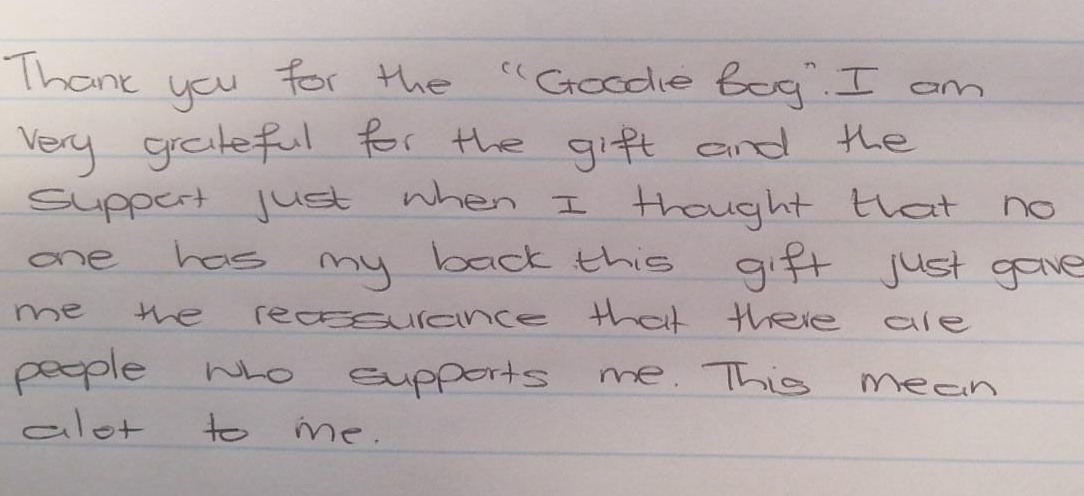 Thank you for the "Goodie Bag". I am
Very grateful for the gift and the
Support just when I thought that no
one has my back this gift just gave
me the reassurance that there are
people who supports me. This mean
alot to me.